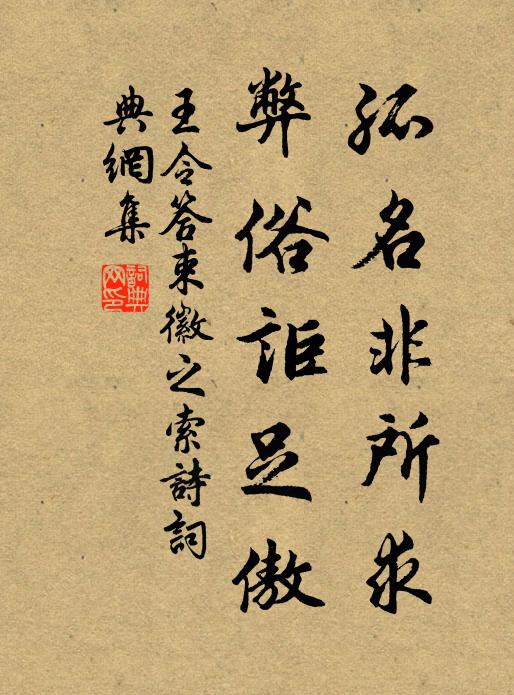 孤名非所求
弊俗詎足傲
王令答束徽之索詩詞
典網集
詞典網印